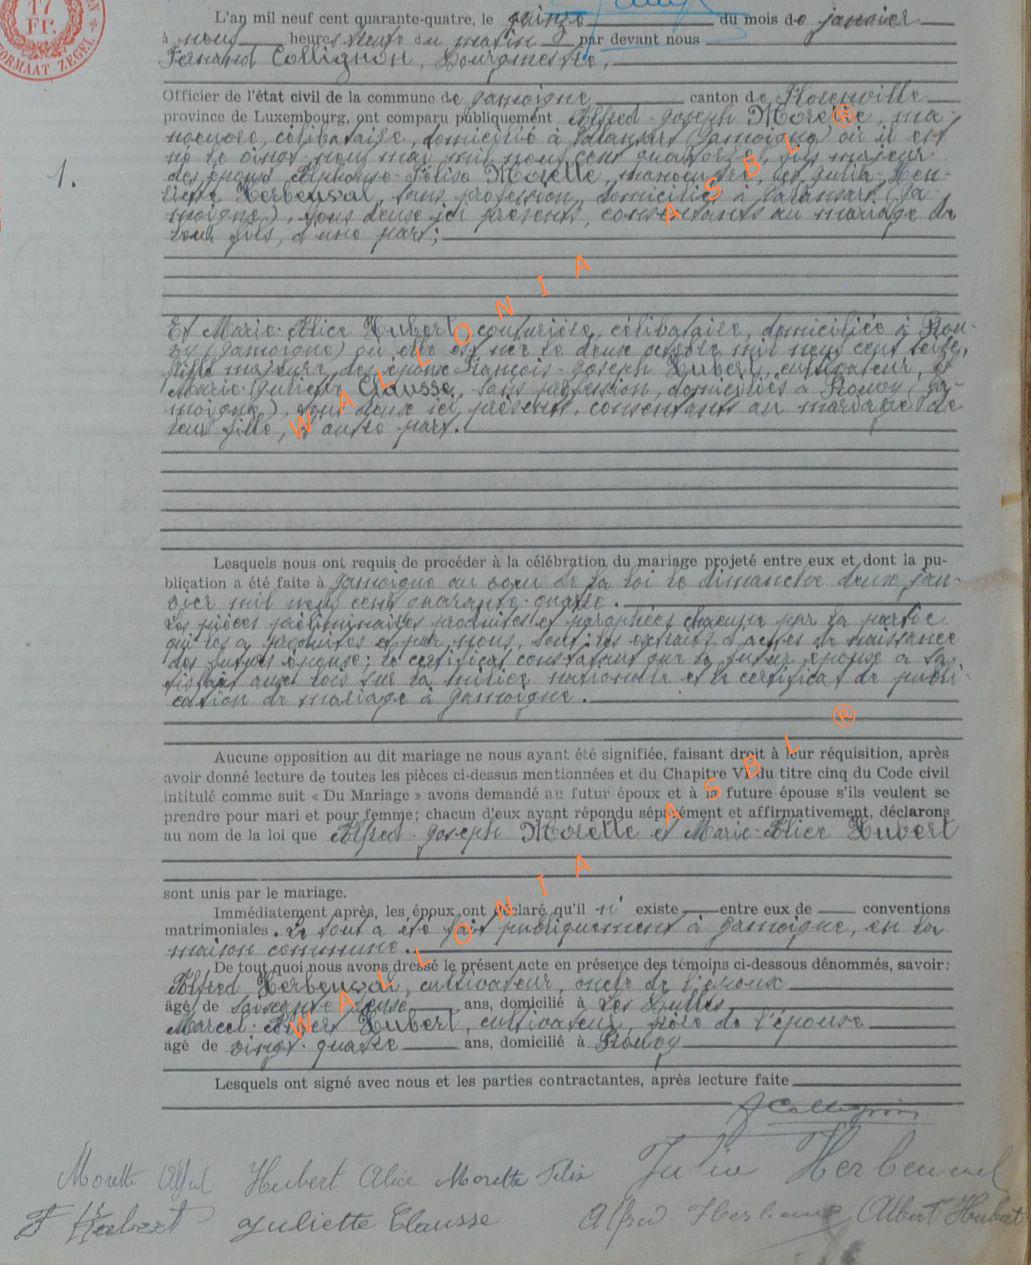 17
FR.
FORMAAT ZEGEL
L'an mil neuf cent quarante-quatre, le quinze du mois de janvier
à neuf heures trente du matin par devant nous
Fernand Collignon, Bourgmestre,
Officier de l'état civil de la commune de Jamoigne canton de Florenville
province de Luxembourg, ont comparu publiquement Alfred-Joseph Morette, ma-
noeuvre, célibataire, domicilié à Valansart (Jamoigne) où il est
né le vingt-neuf mai mil neuf cent quatorze, fils majeur
1.
des époux Alphonse-Félix Morette, manoeuvre, et Julia-Hen-
riette Herbeuval, sans profession, domiciliés à Valansart (Ja-
moigne), tous deux ici présents, consentants au mariage de
leur fils, d'une part;
Et Marie-Alice Hubert, couturière, célibataire, domiciliée à Prou-
vy (Jamoigne) où elle est née le deux octobre mil neuf cent seize,
fille majeure des époux François-Joseph Hubert, cultivateur, et
Marie-Juliette Clausse, sans profession, domiciliés à Prouvy (Ja-
moigne), tous deux ici présents, consentants au mariage de
leur fille, d'autre part.
Lesquels nous ont requis de procéder à la célébration du mariage projeté entre eux et dont la pu-
blication a été faite à Jamoigne au voeu de la loi le dimanche deux jan-
vier mil neuf cent quarante-quatre.
Les pièces préliminaires produites et paraphées chacune par la partie
qui les a produites et par nous, sont: les extraits d'actes de naissance
des futurs époux; le certificat constatant que le futur époux a sa-
tisfait aux lois sur la milice nationale et le certificat de publi-
cation de mariage à Jamoigne.
Aucune opposition au dit mariage ne nous ayant été signifiée, faisant droit à leur réquisition, après
avoir donné lecture de toutes les pièces ci-dessus mentionnées et du Chapitre VI du titre cinq du Code civil
intitulé comme suit « Du Mariage » avons demandé au futur époux et à la future épouse s'ils veulent se
prendre pour mari et pour femme; chacun d'eux ayant répondu séparément et affirmativement, déclarons
au nom de la loi que Alfred-Joseph Morette et Marie-Alice Hubert
sont unis par le mariage.
Immédiatement après, les époux ont déclaré qu'il n' existe entre eux de conventions
matrimoniales. Le tout a été fait publiquement à Jamoigne, en la
maison commune.
De tout quoi nous avons dressé le présent acte en présence des témoins ci-dessous dénommés, savoir:
Alfred Herbeuval, cultivateur, oncle de l'époux
âgé de soixante-deux ans, domicilié à Les Bulles
Marcel-Albert Hubert, cultivateur, frère de l'épouse
âgé de vingt-quatre ans, domicilié à Prouvy
Lesquels ont signé avec nous et les parties contractantes, après lecture faite
F Collignon
Morette Alfred Hubert Alice Morette Félix Julia Herbeuval
F Hubert Juliette Clausse Alfred Herbeuval Albert Hubert
WALLONIA ASBL ®
WALLONIA ASBL ®